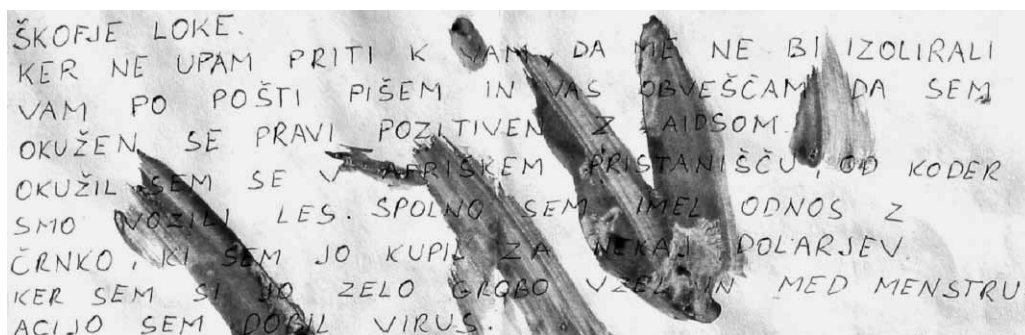 ŠKOFJE LOKE.
KER NE UPAM PRITI K VAM, DA ME NE BI IZOLIRALI
VAM PO POŠTI PIŠEM IN VAS OBVEŠČAM DA SEM
OKUŽEN SE PRAVI POZITIVEN Z AIDSOM.
OKUŽIL SEM SE V AFRIŠKEM PRISTANIŠČU, OD KODER
SMO VOZILI LES. SPOLNO SEM IMEL ODNOS Z
ČRNKO, KI SEM JO KUPIL ZA NEKAJ DOLARJEV.
KER SEM SI JO ZELO GROBO VZEL IN MED MENSTRU
ACIJO SEM DOBIL VIRUS.